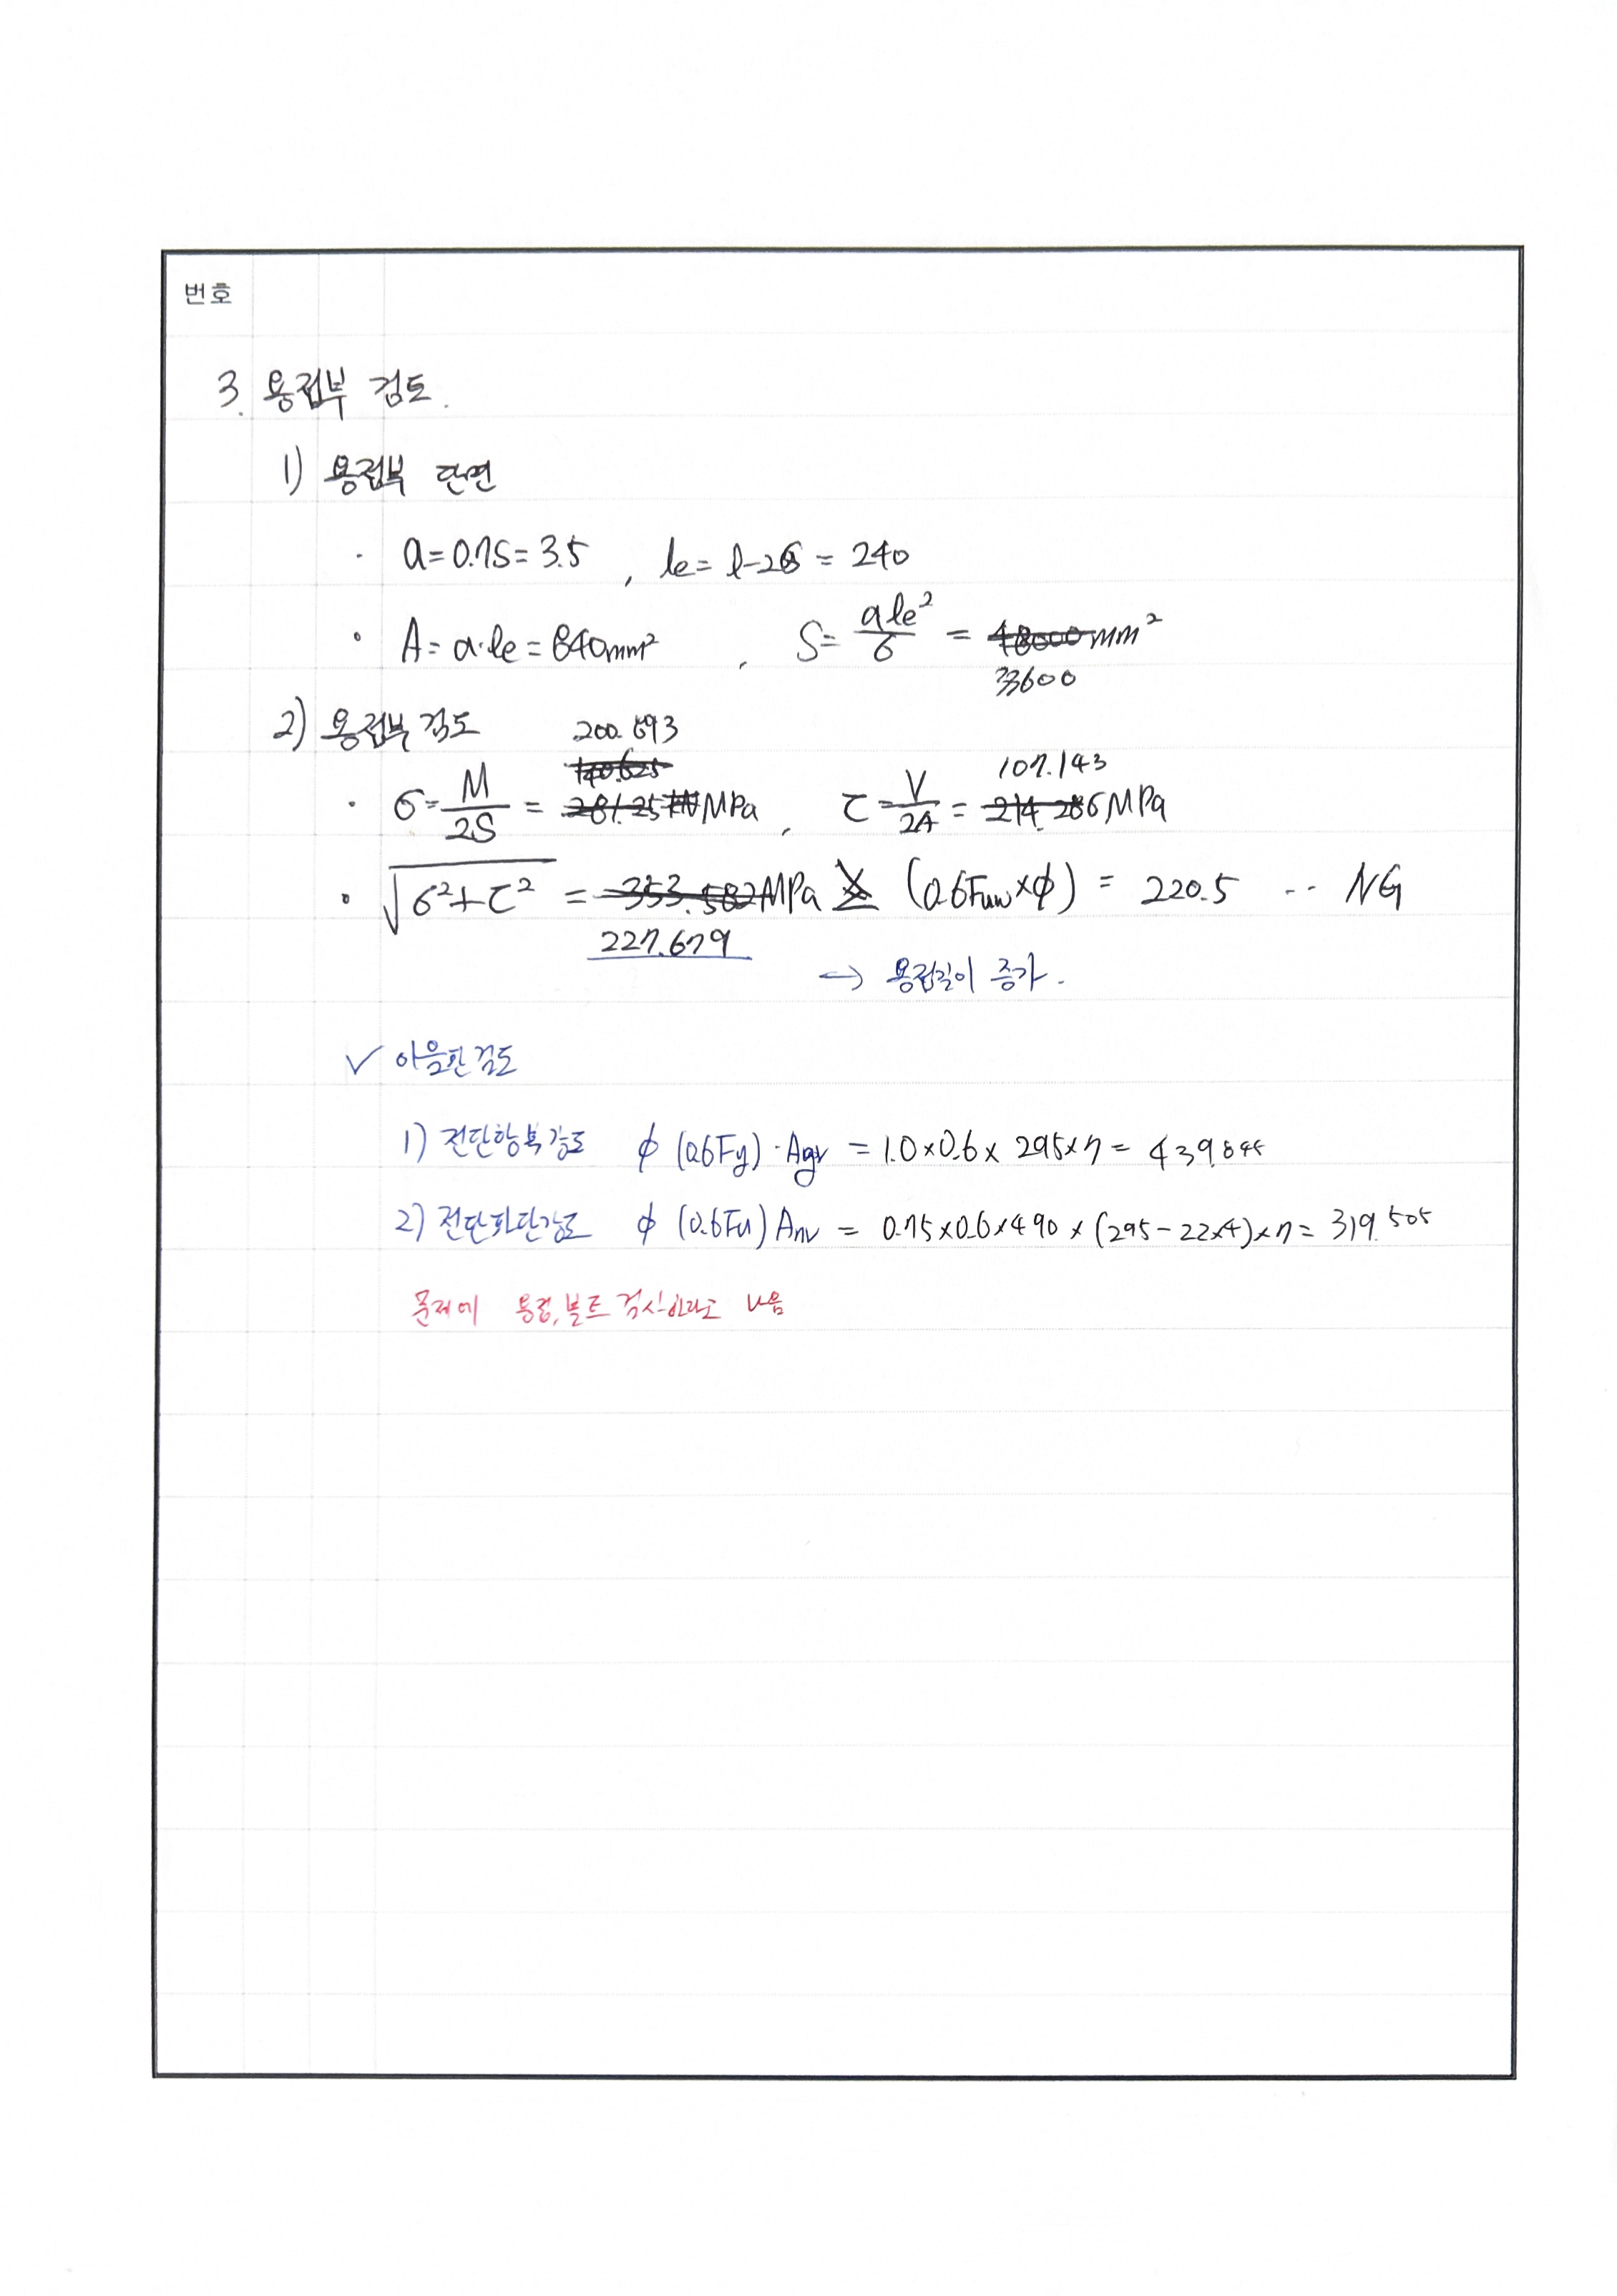 번호
3. 용접부 검토.
1) 용접부 단면
· a=0.7S=3.5 , le= l-2S = 240
· A= a·le = 840mm² , S= ale²/6 = 48000mm²
33600
2) 용접부 검토
200.893 107.143
140.625
· σ= M/2S = 281.25 MPa , τ= V/2A = 214.286MPa
· √σ²+τ² = 353.582MPa (0.6Fuw×ϕ) = 220.5 ‥ NG
227.679
→ 용접길이 증가.
✓ 이음판 검토
1) 전단항복강도 ϕ (0.6Fy)·Agv = 1.0×0.6× 295×7= 439.844
2) 전단파단강도 ϕ (0.6Fu) Anv = 0.75×0.6×490×(295-22×4)×7= 319.505
문제에 용접, 볼트 검사하라고 나옴